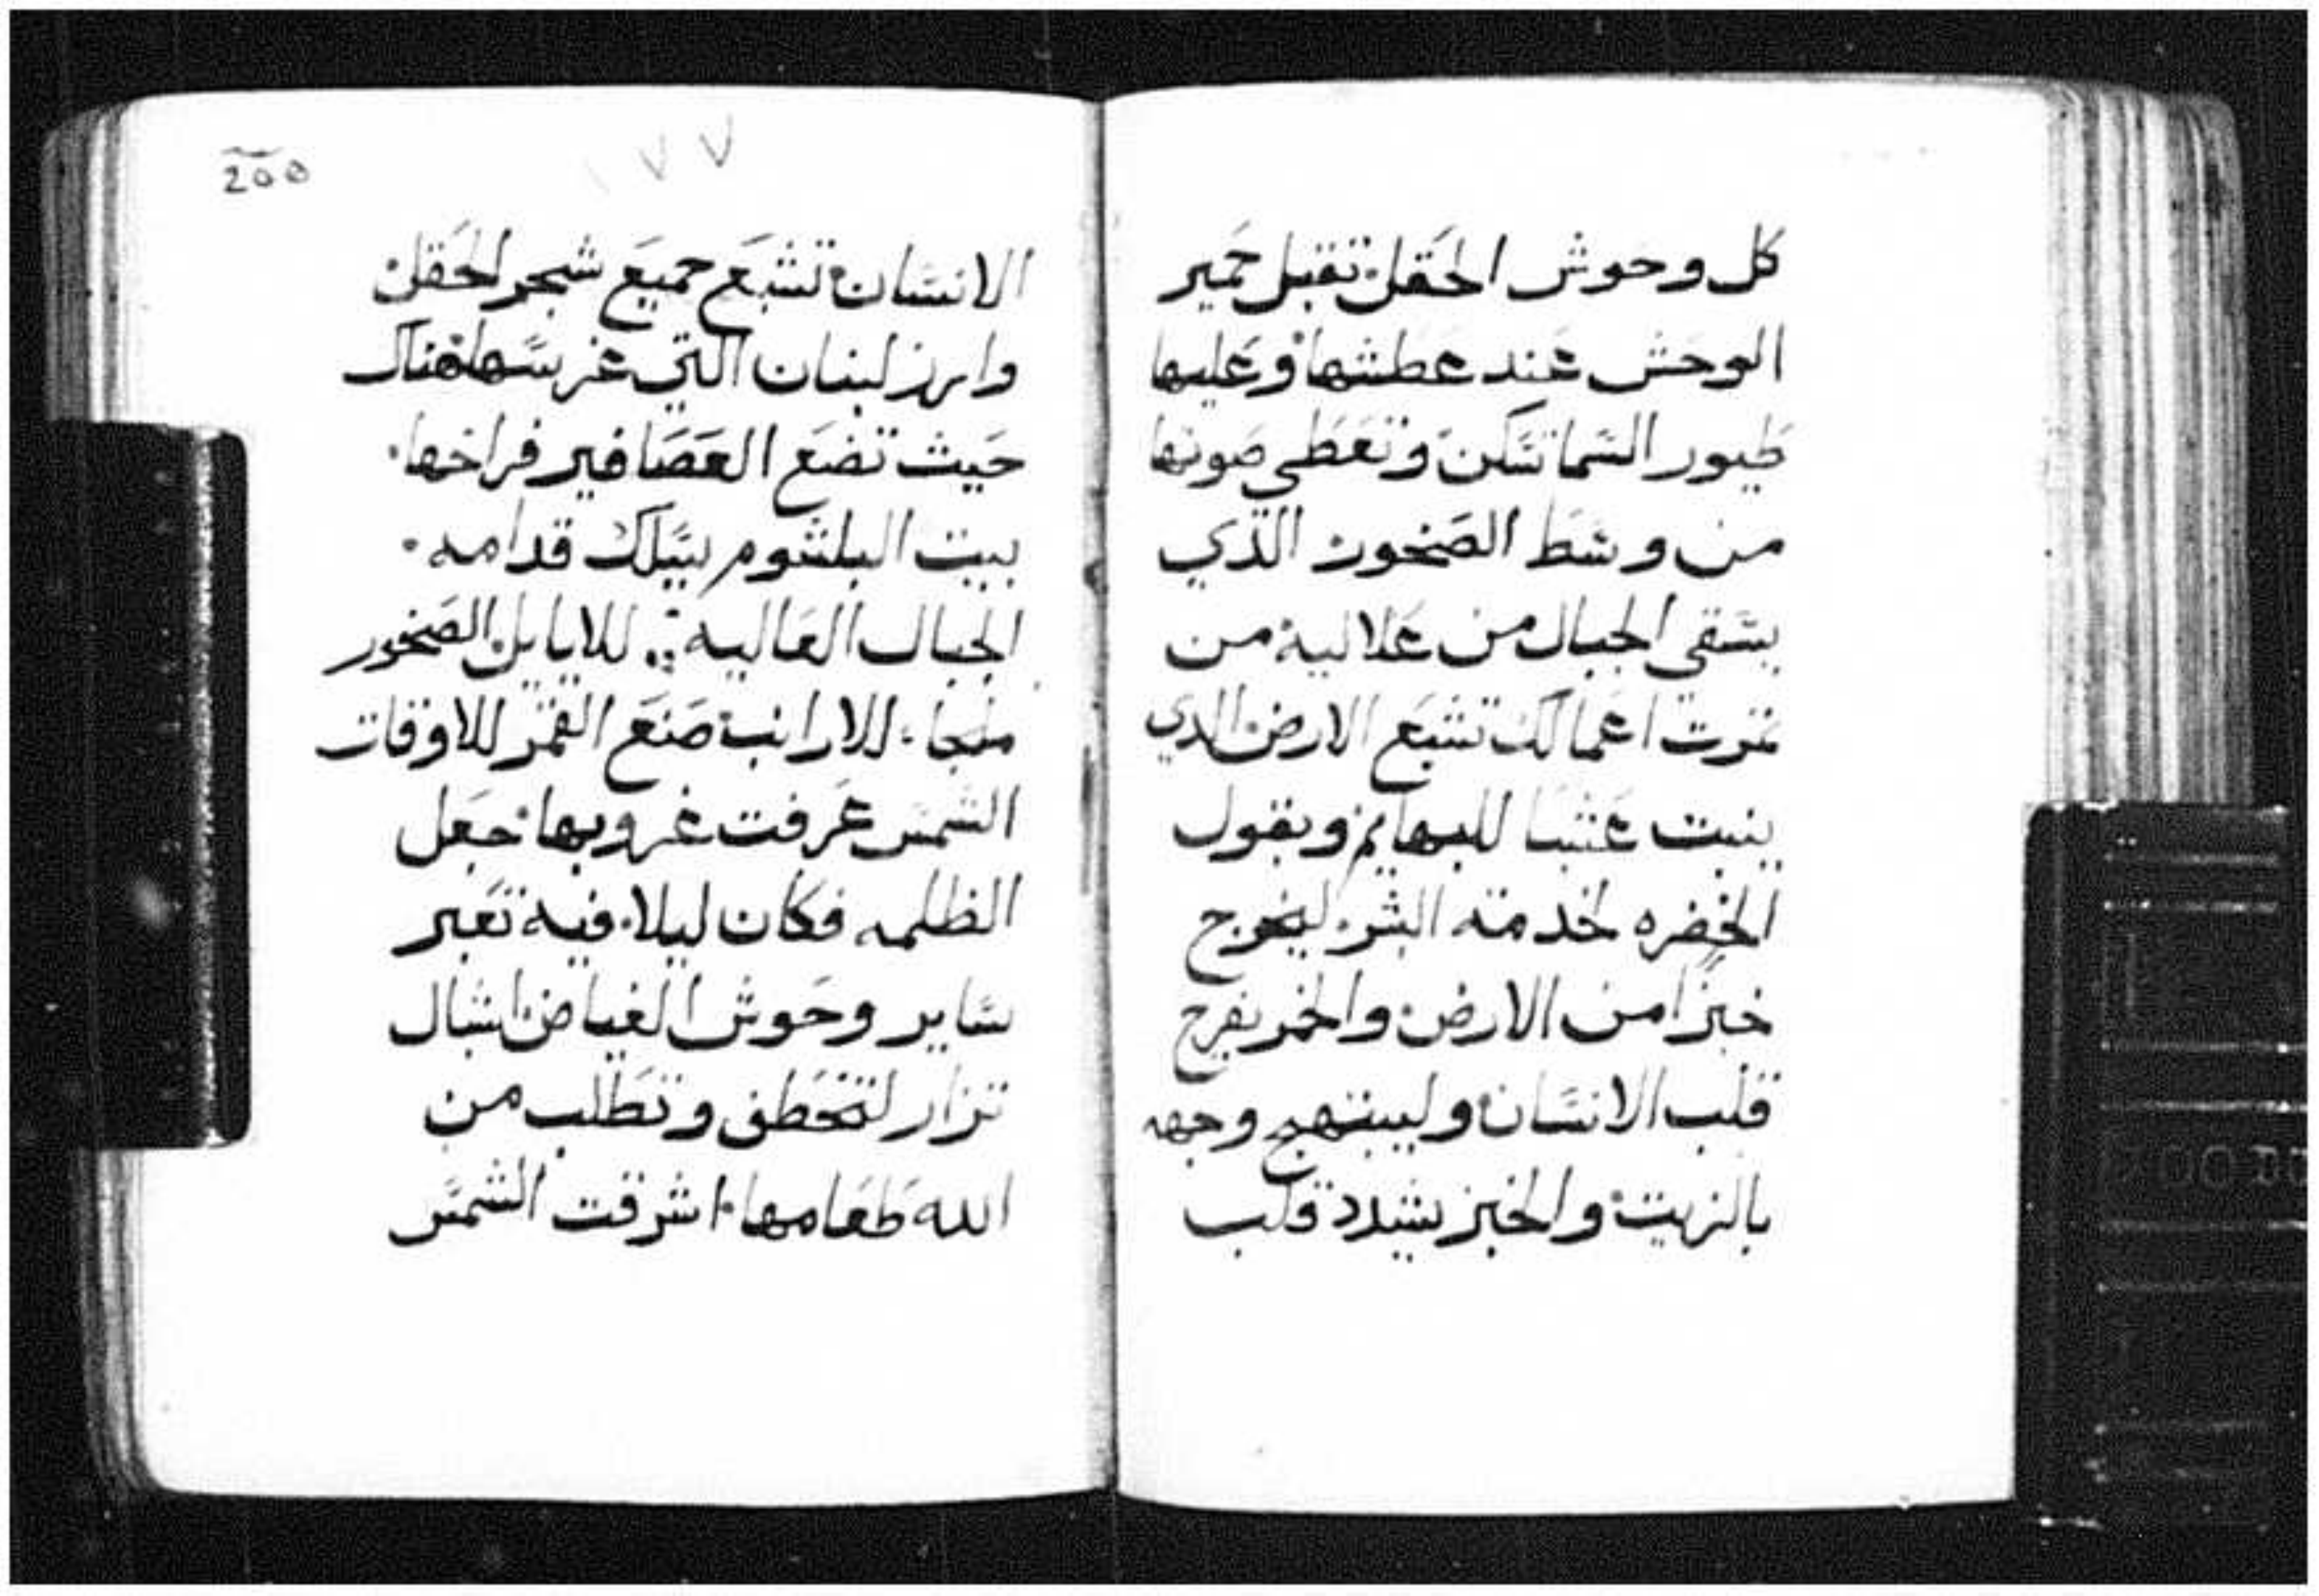 كل وحوش الحقل تقبل حمير
الوحش عند عطشها وعليها
طيور السما تسكن وتعطي صوتها
من وسط الصخور الذي
يسقي الجبال من علاليه من
ثمرت اعمالك تشبع الارض الدي
ينبت عشبا للبهايم وبقول
الخضره لخدمة البشر ليخرج
خبزا من الارض والخمر يفرح
قلب الانسان وليبتهج وجهه
بالزيت والخبز يشدد قلب
١٧٧
الانسان تشبع جميع شجر الحقل
وارز لبنان التي غرسها هناك
حيث تضع العصافير فراخها
بيت البلشوم قدامه
الجبال العاليه للايايل الصخور
ملجا للارانب صنع القمر للاوقات
الشمس عرفت غروبها جعل
الظلمه فكان ليلا فيه تعبر
ساير وحوش الغياض اشبال
تزار لتخطف وتطلب من
الله طعامها اشرقت الشمس